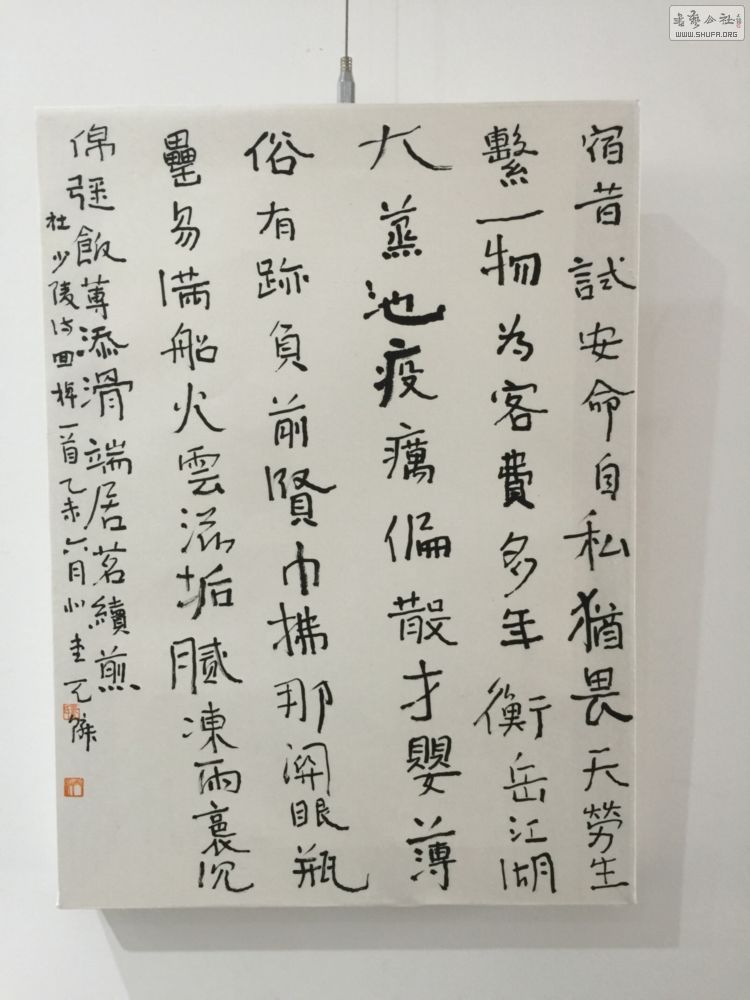 宿昔試安命自私猶畏天勞生
繫一物為客費多年衡岳江湖
大蒸池疫癘偏散才嬰薄
俗有跡負前賢巾拂那關眼瓶
罍易滿船火雲滋垢膩凍雨裛沉
綿強飯蓴添滑端居茗續煎
杜少陵詩回棹一首乙未六月小
WWW.SHUFA.ORG